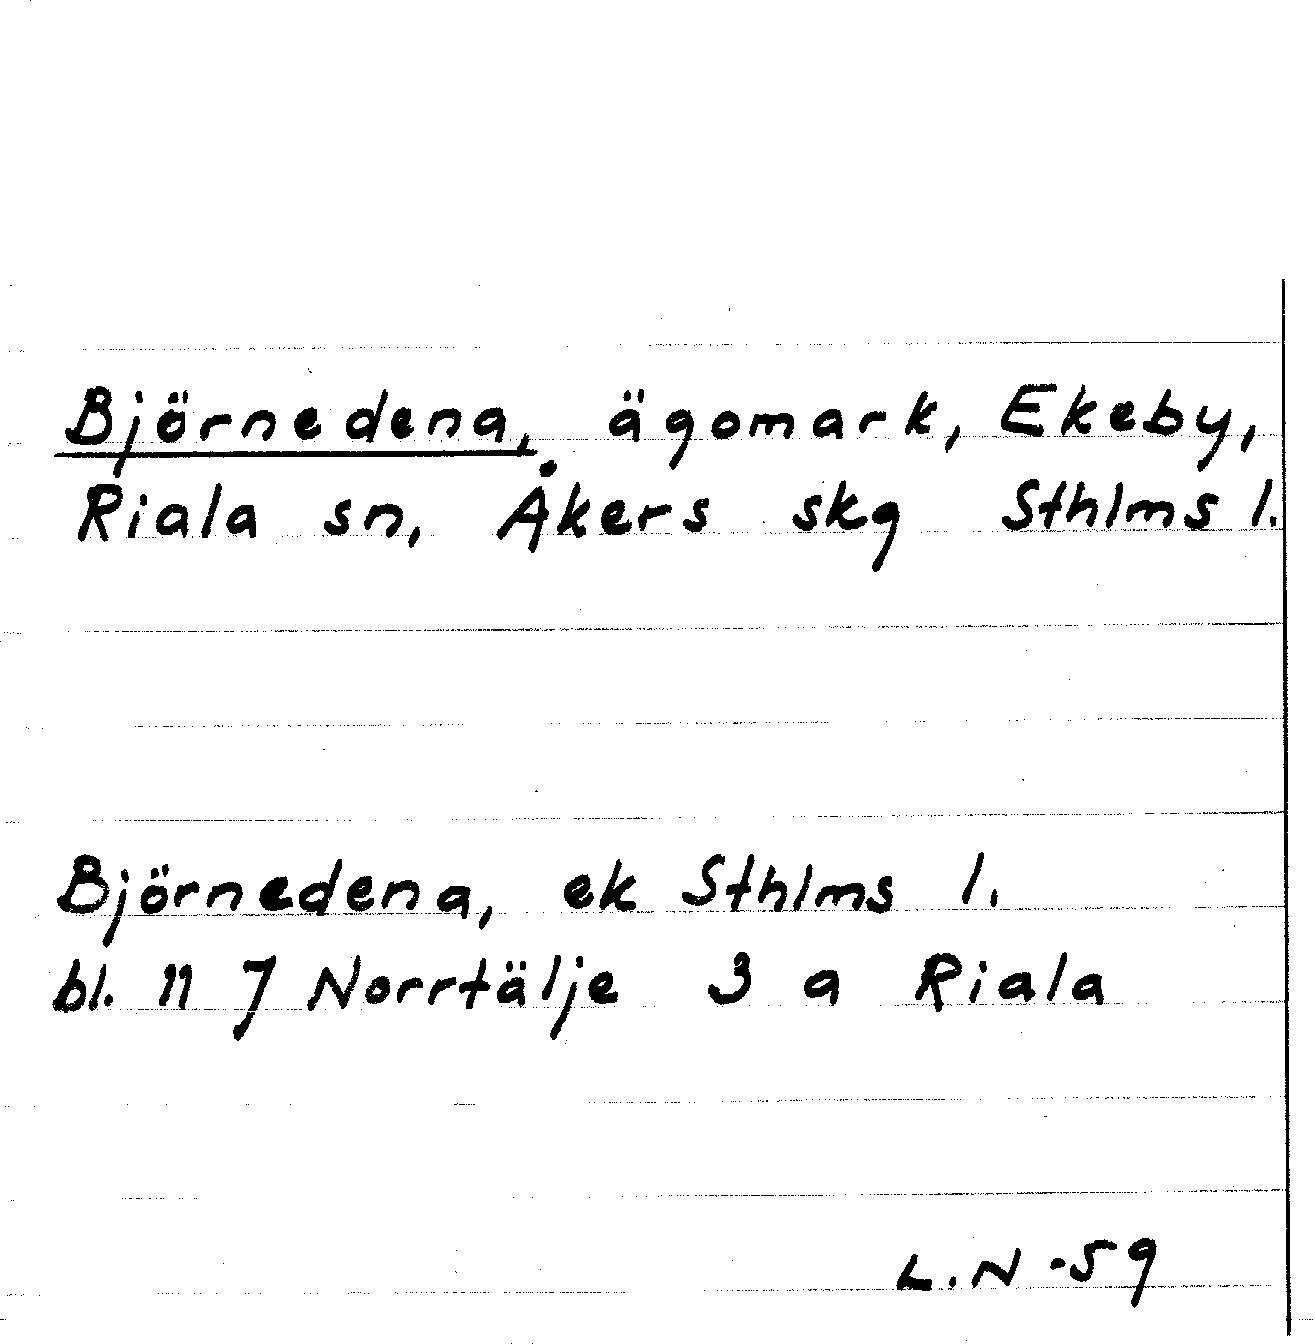 Björnedena, ägomark, Ekeby,
Riala sn, Åkers skg Sthlms l.
Björnedena, ek Sthlms l.
bl. 11 7 Norrtälje 3 a Riala
L.N -59